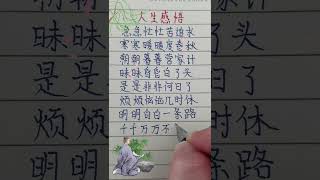 人生感悟
急急忙忙苦追求
寒寒暖暖度春秋
朝朝暮暮营家计
昧昧昏昏白了头
是是非非何日了
烦烦恼恼几时休
明明白白一条路
千千万万不